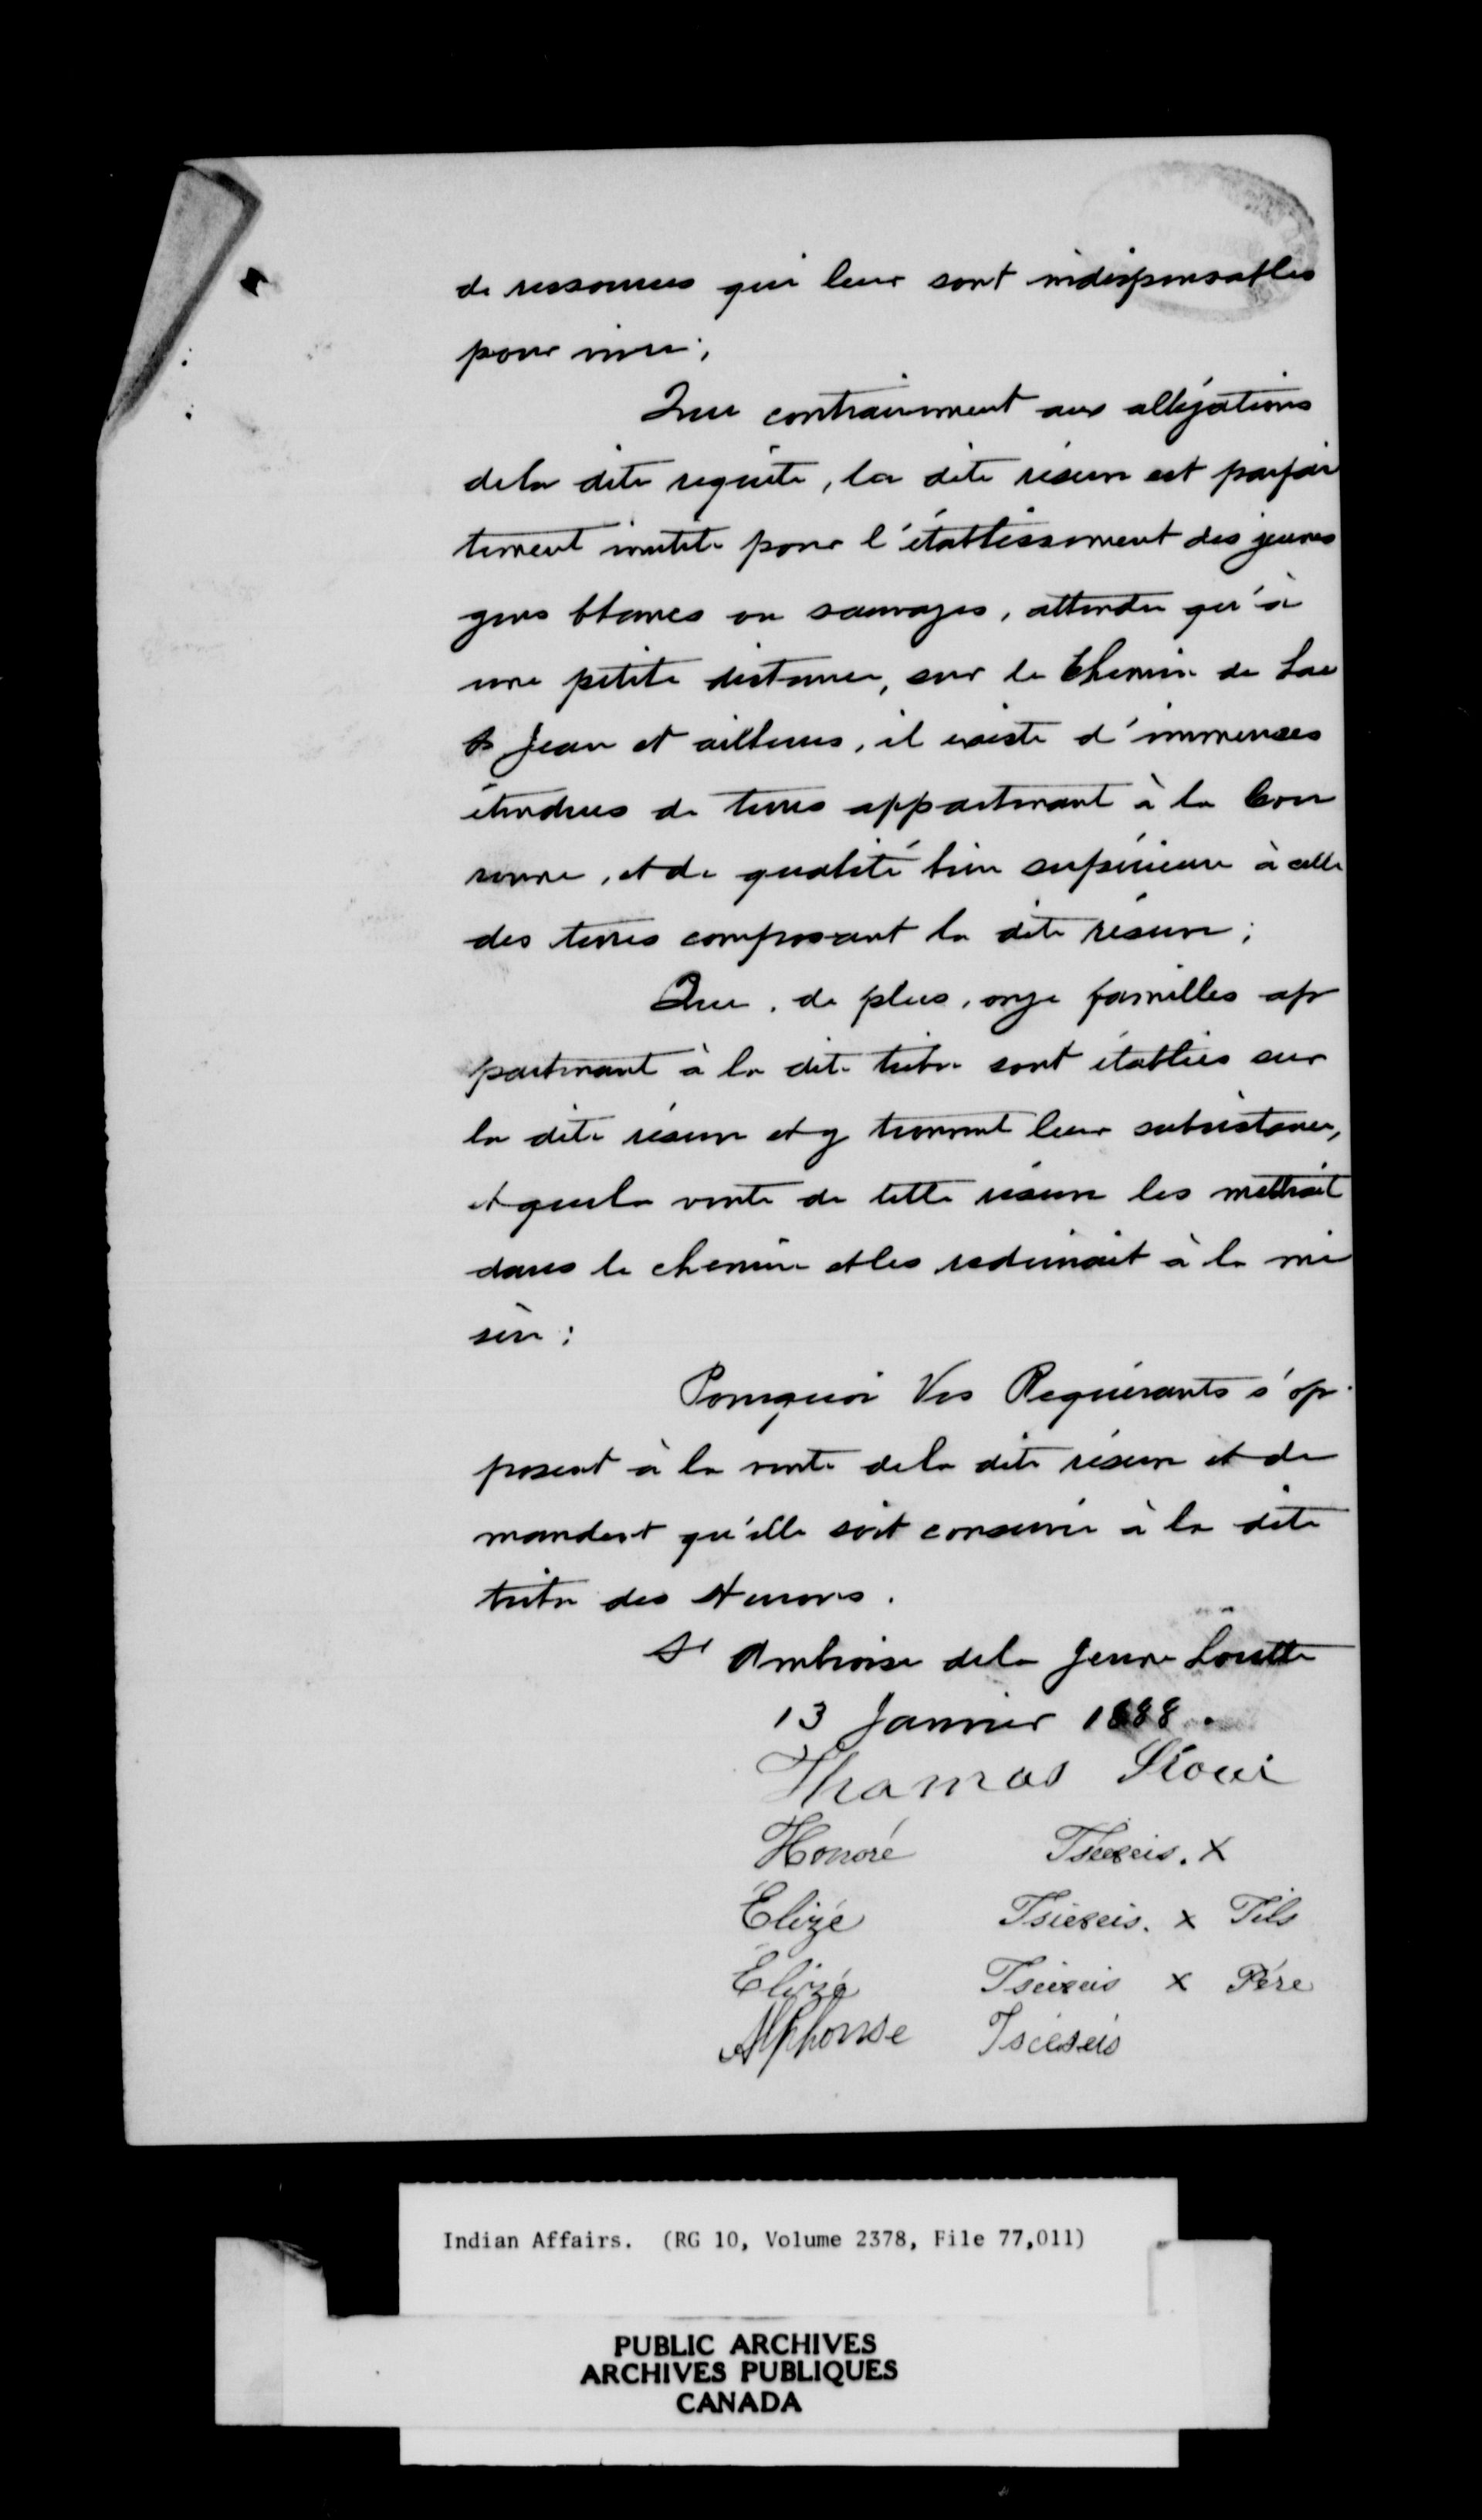 de ressources qui leur sont indispensables
pour vivre;
Que contrairement aux allégations
de la dite requête, la dite réserve est parfai
tement inutile pour l'établissement des jeunes
gens blancs ou sauvages, attendu qu'à
une petite distance, sur le Chemin de Lac
St Jean et ailleurs, il existe d'immenses
étendues de terres appartenant à la Cou
ronne, et de qualité bien supérieure à celle
des terres composant la dite réserve;
Que, de plus, onze familles ap
partenant à la dite tribu sont établies sur
la dite réserve et y trouvent leur subsistance,
et que la vente de cette réserve les mettrait
dans le chemin et les réduirait à la mi
sère;
Pourquoi Vos Requérants s'op
posent à la vente de la dite réserve et de
mandent qu'elle soit conservée à la dite
tribu des Hurons.
St Ambroise de la Jeune Lorette
13 Janvier 1888.
Thomas Sioui
Honoré Tsieseis. X
Élizé Tsieseis. x Fils
Élizé Tsieseis x Père
Alphonse Tsieseis
Indian Affairs. (RG 10, Volume 2378, File 77,011)
PUBLIC ARCHIVES
ARCHIVES PUBLIQUES
CANADA